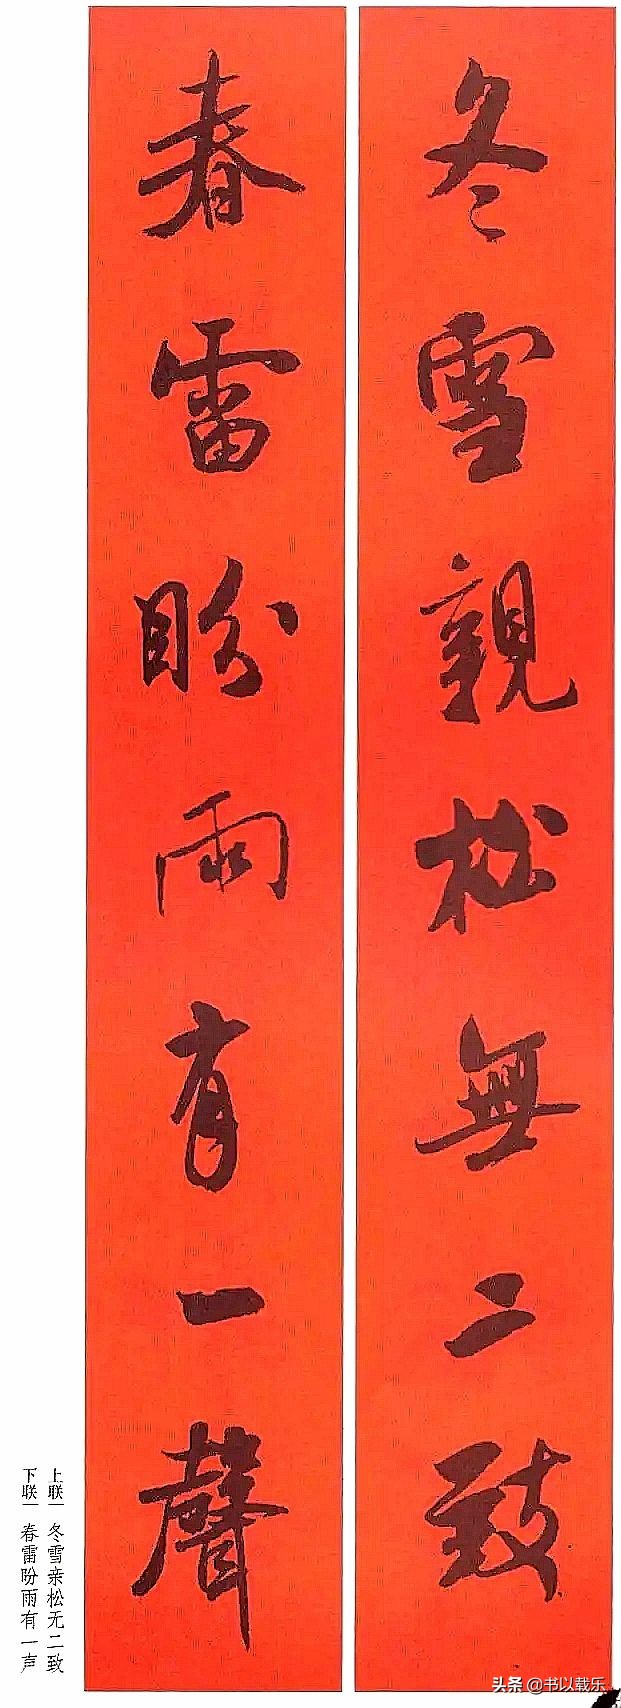 冬雪親松無二致
春雷盼雨有一聲
上联｜冬雪亲松无二致
下联｜春雷盼雨有一声
头条 @书以载乐